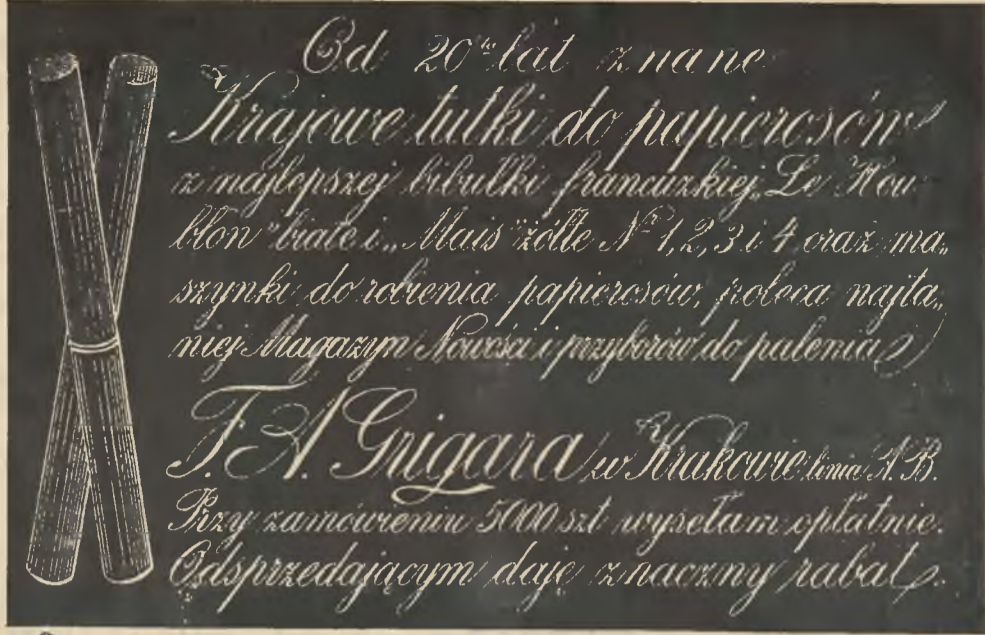 Od 20tu lat znane
Krajowe tutki do papierosów
z najlepszej bibułki francuzkiej „Le Hou
blon" białe i „Mais" żółte Nr 1, 2, 3 i 4 oraz ma„
szynki do robienia papierosów, poleca najta„
niej Magazyn Nowości i przyborów do palenia
F. A. Grigara w Krakowie linia A. B.
Przy zamówieniu 5000 szt wysełam opłatnie.
Odsprzedającym daję znaczny rabat.